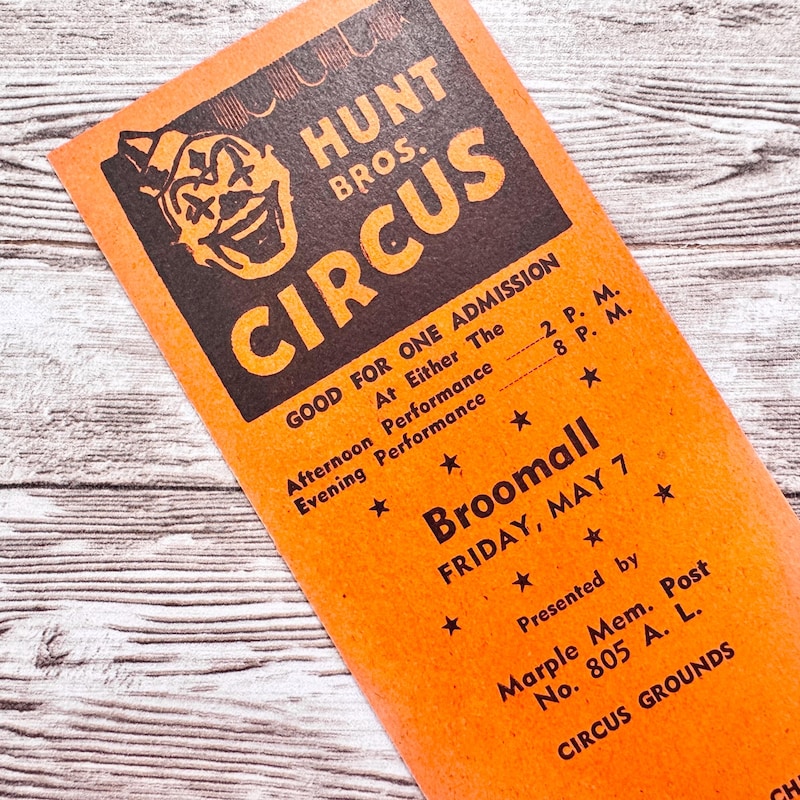 HUNT
BROS.
CIRCUS
GOOD FOR ONE ADMISSION
At Either The
Afternoon Performance 2 P. M.
Evening Performance 8 P. M.
Broomall
FRIDAY, MAY 7
Presented by
Marple Mem. Post
No. 805 A. L.
CIRCUS GROUNDS